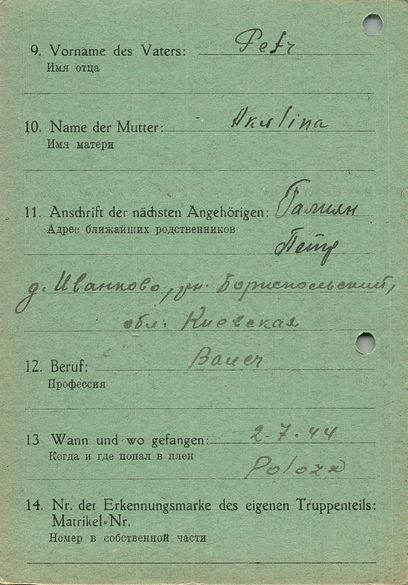 9. Vorname des Vaters: Petr
Имя отца
10. Name der Mutter: Akulina
Имя матери
11. Anschrift der nächsten Angehörigen:
Адрес ближайших родственников
Петр
д. Иванково, рн. Бориспольский,
обл. Киевская
12. Beruf: Bauer
Профессия
13 Wann und wo gefangen: 2.7.44
Когда и где попал в плен
14. Nr. der Erkennungsmarke des eigenen Truppenteils:
Matrikel-Nr.
Номер в собственной части